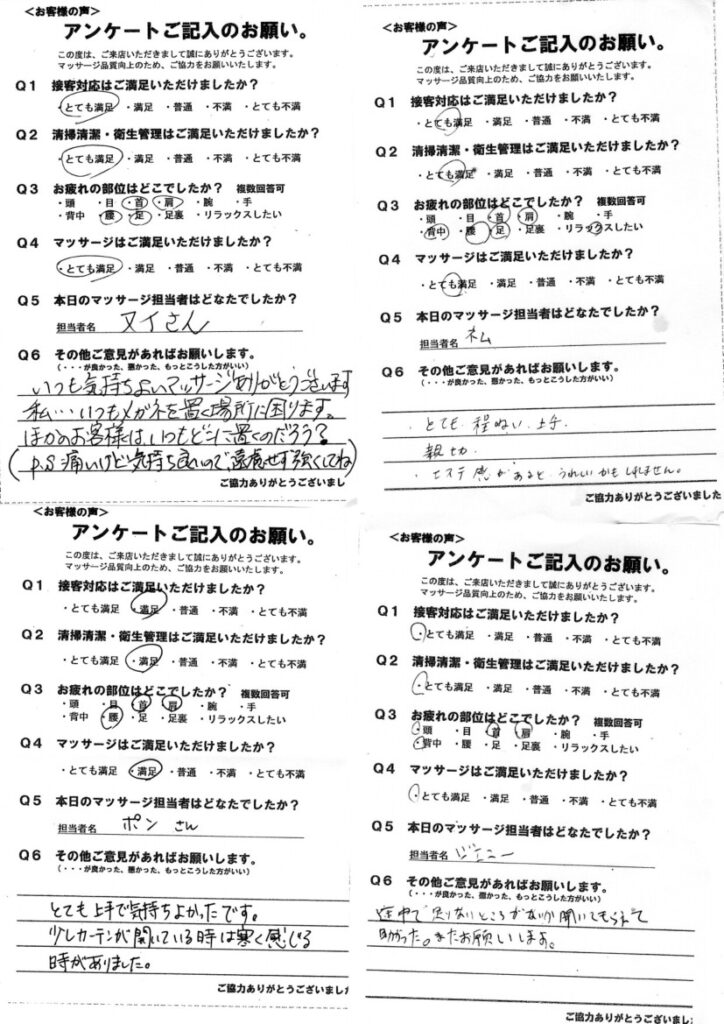 ＜お客様の声＞
アンケートご記入のお願い。
この度は、ご来店いただきまして誠にありがとうございます。
マッサージ品質向上のため、ご協力をお願いいたします。
Q1 接客対応はご満足いただけましたか？
・とても満足 ・満足 ・普通 ・不満 ・とても不満
Q2 清掃清潔・衛生管理はご満足いただけましたか？
・とても満足 ・満足 ・普通 ・不満 ・とても不満
Q3 お疲れの部位はどこでしたか？ 複数回答可
・頭 ・目 ・首 ・肩 ・腕 ・手
・背中 ・腰 ・足 ・足裏 ・リラックスしたい
Q4 マッサージはご満足いただけましたか？
・とても満足 ・満足 ・普通 ・不満 ・とても不満
Q5 本日のマッサージ担当者はどなたでしたか？
担当者名 ヌイさん
Q6 その他ご意見があればお願いします。
（・・・が良かった、悪かった、もっとこうした方がいい）
いつも気持ちよいマッサージありがとうございます
私…いつもメガネを置く場所に困ります。
ほかのお客様は、いつもどこに置くのだろう？
(P.S 痛いけど気持ち良いので、遠慮せず強くしてね)
ご協力ありがとうございまし
＜お客様の声＞
アンケートご記入のお願い。
この度は、ご来店いただきまして誠にありがとうございます。
マッサージ品質向上のため、ご協力をお願いいたします。
Q1 接客対応はご満足いただけましたか？
・とても満足 ・満足 ・普通 ・不満 ・とても不満
Q2 清掃清潔・衛生管理はご満足いただけましたか？
・とても満足 ・満足 ・普通 ・不満 ・とても不満
Q3 お疲れの部位はどこでしたか？ 複数回答可
・頭 ・目 ・首 ・肩 ・腕 ・手
・背中 ・腰 ・足 ・足裏 ・リラックスしたい
Q4 マッサージはご満足いただけましたか？
・とても満足 ・満足 ・普通 ・不満 ・とても不満
Q5 本日のマッサージ担当者はどなたでしたか？
担当者名 ネム
Q6 その他ご意見があればお願いします。
（・・・が良かった、悪かった、もっとこうした方がいい）
・とても 上手
親切
・エステ感があると、うれしいかもしれません。
ご協力ありがとうございました
＜お客様の声＞
アンケートご記入のお願い。
この度は、ご来店いただきまして誠にありがとうございます。
マッサージ品質向上のため、ご協力をお願いいたします。
Q1 接客対応はご満足いただけましたか？
・とても満足 ・満足 ・普通 ・不満 ・とても不満
Q2 清掃清潔・衛生管理はご満足いただけましたか？
・とても満足 ・満足 ・普通 ・不満 ・とても不満
Q3 お疲れの部位はどこでしたか？ 複数回答可
・頭 ・目 ・首 ・肩 ・腕 ・手
・背中 ・腰 ・足 ・足裏 ・リラックスしたい
Q4 マッサージはご満足いただけましたか？
・とても満足 ・満足 ・普通 ・不満 ・とても不満
Q5 本日のマッサージ担当者はどなたでしたか？
担当者名 ポン さん
Q6 その他ご意見があればお願いします。
（・・・が良かった、悪かった、もっとこうした方がいい）
とても上手で気持ちよかったです。
少しカーテンが開いている時は寒く感じる
時がありました。
ご協力ありがとうございました
＜お客様の声＞
アンケートご記入のお願い。
この度は、ご来店いただきまして誠にありがとうございます。
マッサージ品質向上のため、ご協力をお願いいたします。
Q1 接客対応はご満足いただけましたか？
・とても満足 ・満足 ・普通 ・不満 ・とても不満
Q2 清掃清潔・衛生管理はご満足いただけましたか？
・とても満足 ・満足 ・普通 ・不満 ・とても不満
Q3 お疲れの部位はどこでしたか？ 複数回答可
・頭 ・目 ・首 ・肩 ・腕 ・手
・背中 ・腰 ・足 ・足裏 ・リラックスしたい
Q4 マッサージはご満足いただけましたか？
・とても満足 ・満足 ・普通 ・不満 ・とても不満
Q5 本日のマッサージ担当者はどなたでしたか？
担当者名 ジェニー
Q6 その他ご意見があればお願いします。
（・・・が良かった、悪かった、もっとこうした方がいい）
途中で足りないところがないか聞いてもらえて
助かった。またお願いします。
ご協力ありがとうございまし